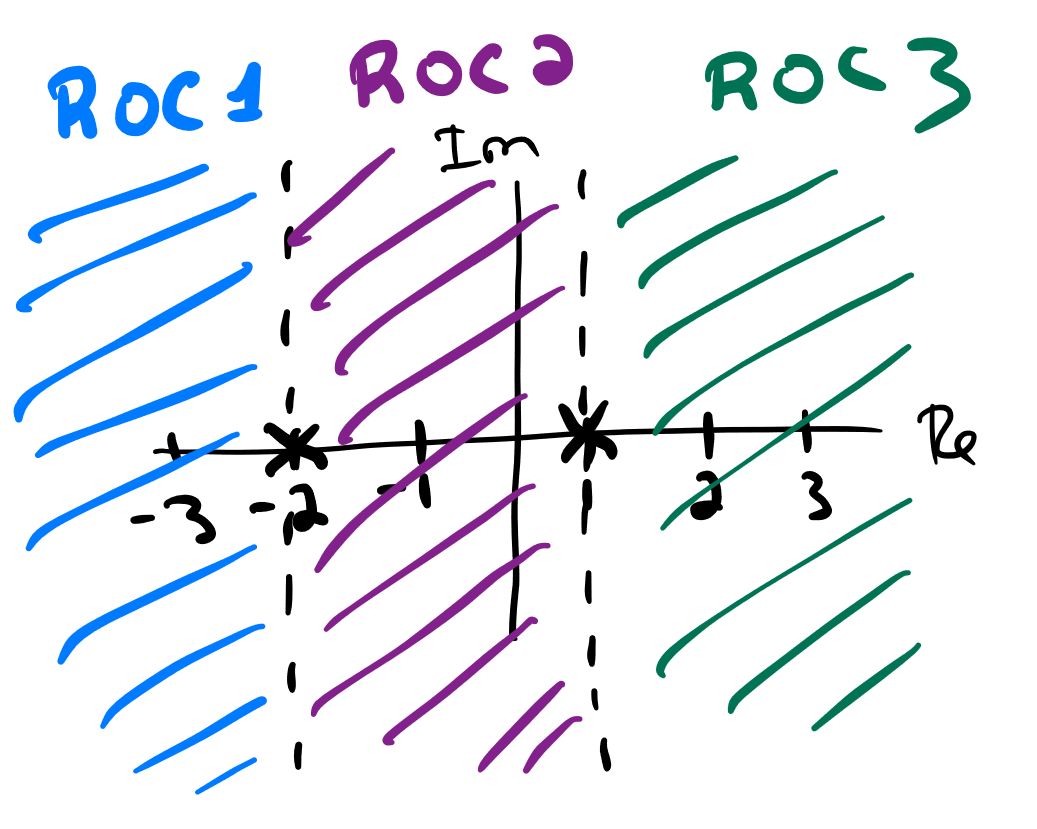 ROC1 ROC2 ROC3
Im
Re
-3 -2 -1 2 3